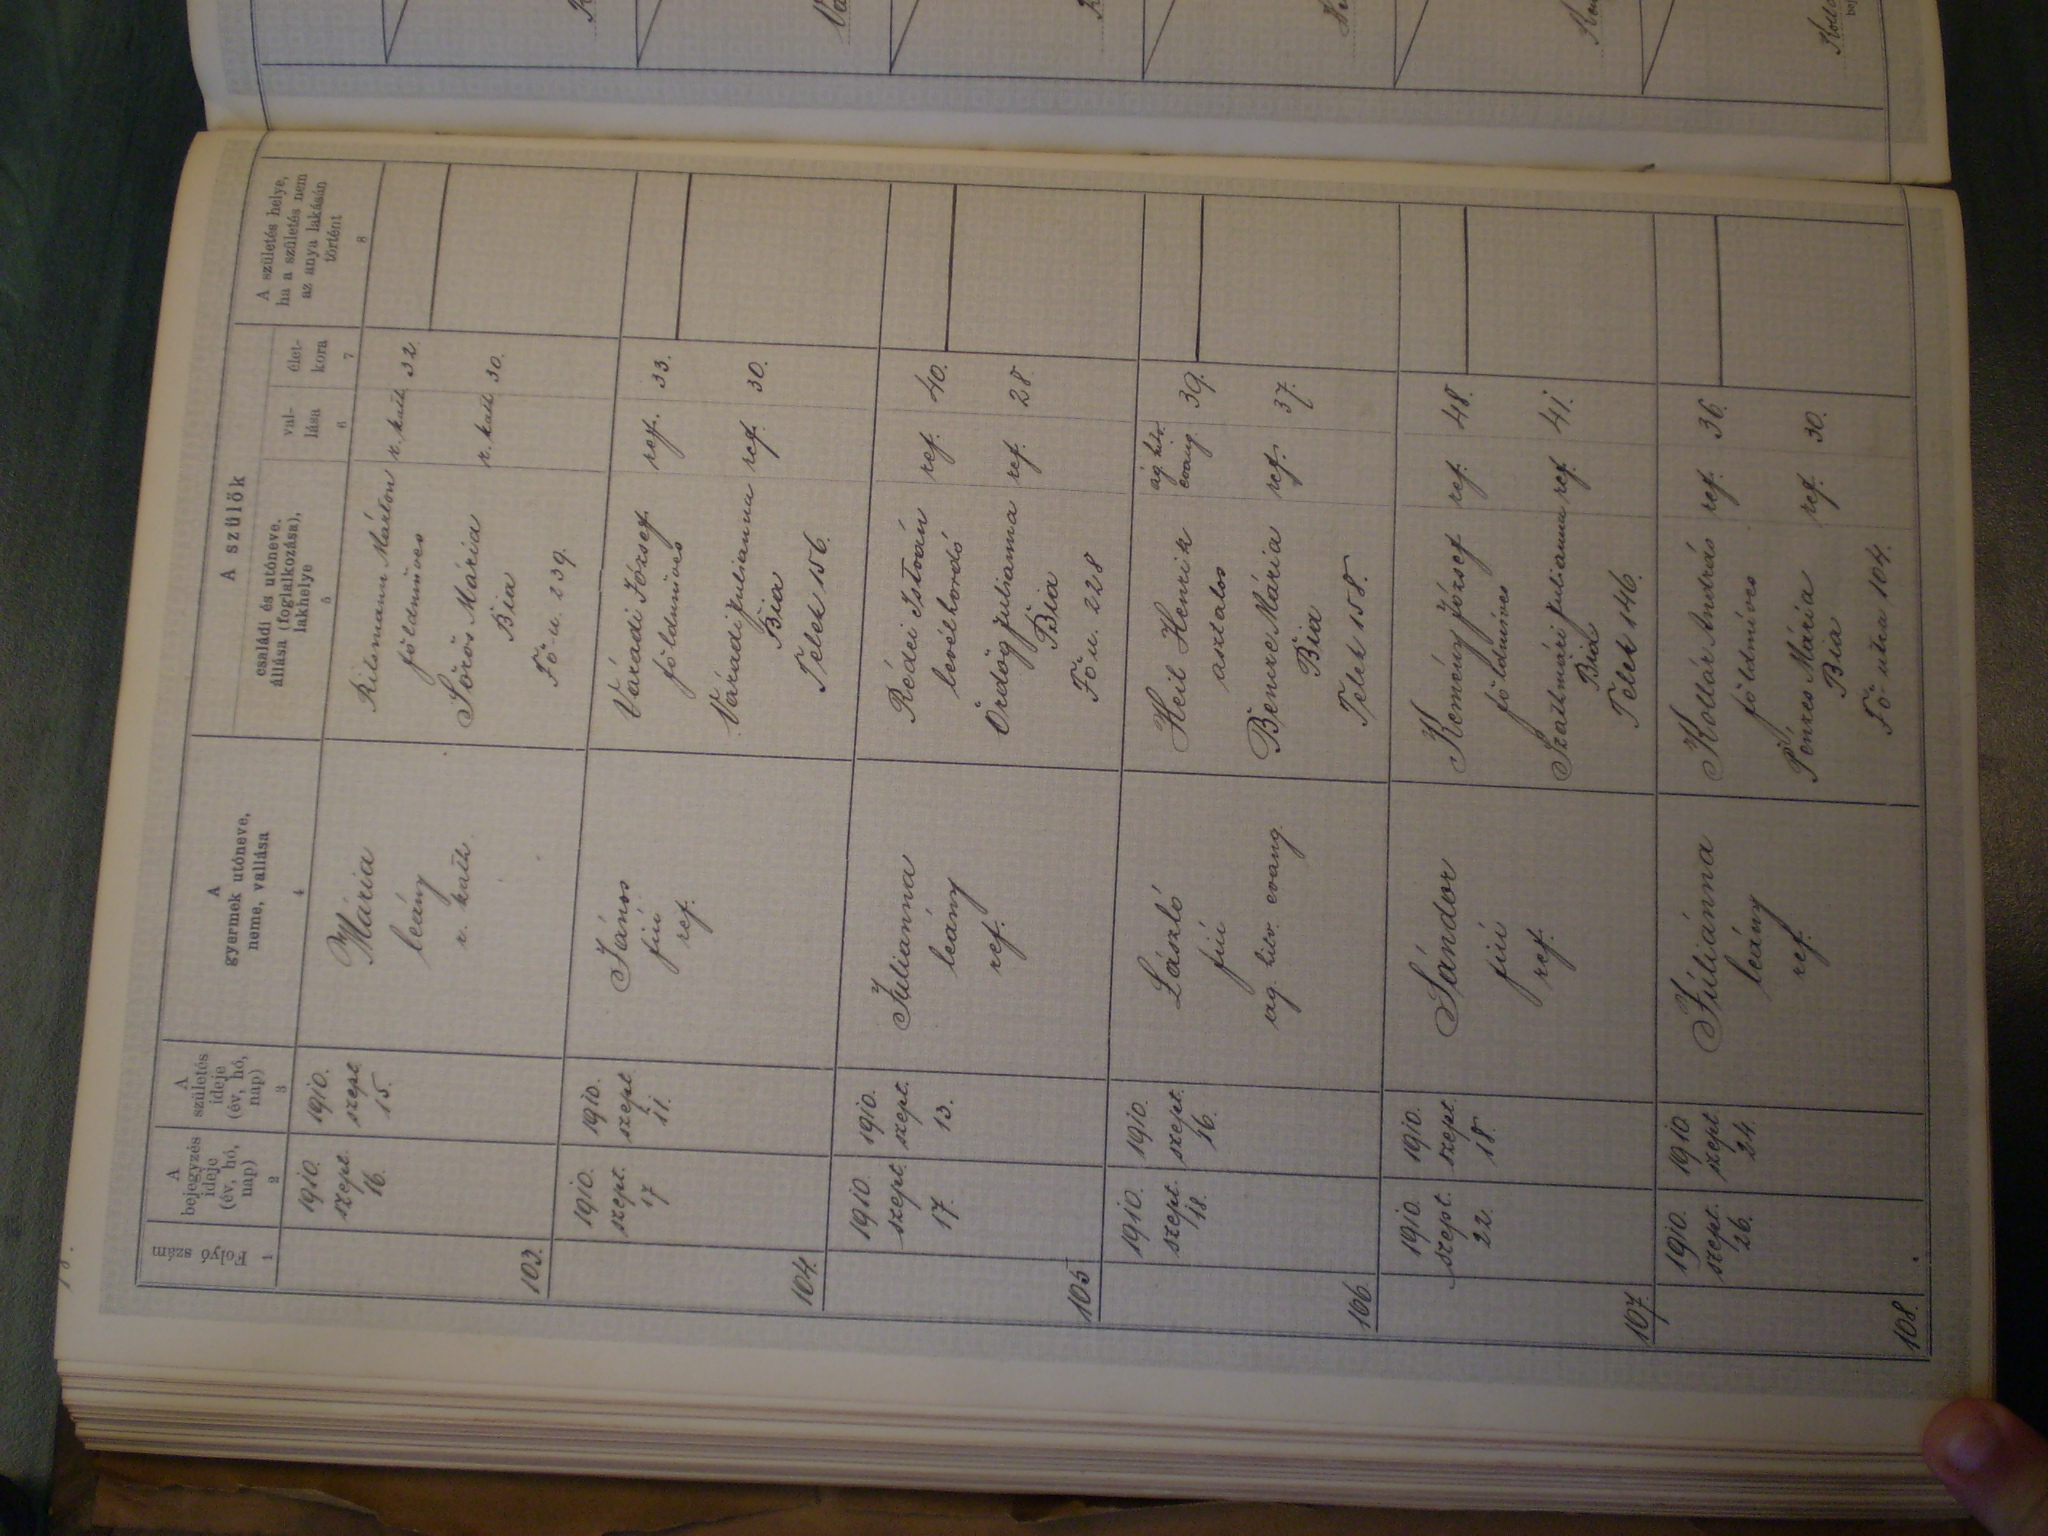 Folyó szám
A bejegyzés ideje (év, hó, nap)
A születés ideje (év, hó, nap)
A gyermek utóneve, neme, vallása
A szülők
családi és utóneve, állása (foglalkozása), lakhelye
vallása
életkora
A születés helye, ha a születés nem az anya lakásán történt
1
2
3
4
5
6
7
8
103.
1910. szept. 16.
1910. szept. 15.
Mária
leány
r. kath.
Márton r. kath. 32.
földmíves
Sörös Mária r. kath. 30.
Bia
Fő-u. 239.
104.
1910. szept. 17
1910. szept. 11.
János
fiú
ref.
Váradi József ref. 33.
földmíves
Váradi Julianna ref. 30.
Bia
Telek 156.
105
1910. szept. 17.
1910. szept. 13.
Julianna
leány
ref.
Rédei István ref. 40.
levélhordó
Ördög Julianna ref. 28.
Bia
Fő u. 228
106.
1910. szept. 18.
1910. szept. 16.
László
fiú
ág. hitv. evang.
Heil Henrik ág. hitv. evang. 39.
asztalos
Bencze Mária ref. 37.
Bia
Telek 158.
107.
1910. szept. 22.
1910. szept. 18.
Sándor
fiú
ref.
Kemény József ref. 48.
földmíves
Szathmári Julianna ref. 41.
Bia
Telek 146.
108.
1910. szept. 26.
1910 szept 24.
Júliánna
leány
ref.
Kollár András ref. 36.
földmíves
Pénzes Mária ref. 30.
Bia
Fő-utca 104.